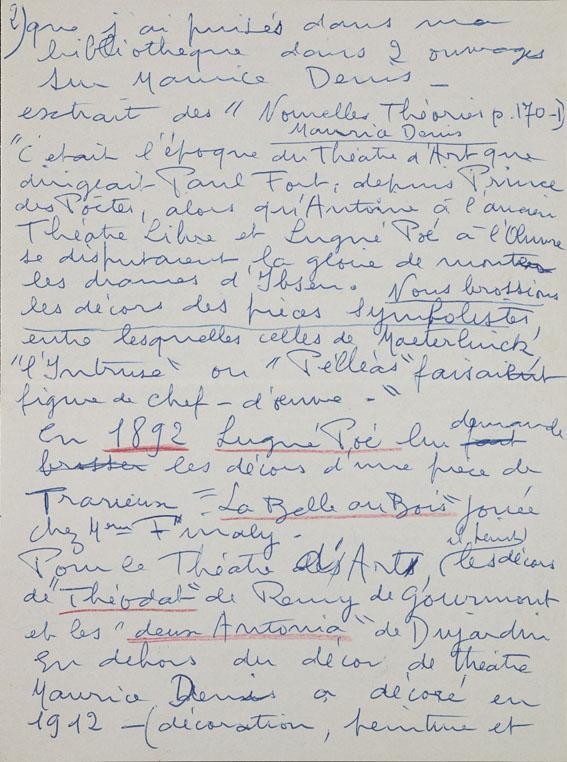 2) que j'ai puisés dans ma
bibliothèque dans 2 ouvrages
sur Maurice Denis -
extrait des " Nouvelles Théories p. 170-1)
Maurice Denis
"C'était l'époque du Théâtre d'Art que
dirigeait Paul Fort, depuis Prince
des Poètes, alors qu'Antoine à l'ancien
Théâtre Libre et Lugné Poé à l'Œuvre
se disputaient la gloire de monter
les drames d'Ibsen. Nous brossions
les décors des pièces symbolistes,
entre lesquelles celles de Maeterlinck,
"l'Intruse" ou "Pelléas" faisait
figure de chef-d'œuvre - "
En 1892 Lugné Poé lui demande
brosser les décors d'une pièce de
Trarieux = La Belle au Bois" jouée
chez Mme Finaly -
il peint
Pour le Théâtre d'Art, (les décors
de "Théodat" de Remy de Gourmont
et les "deux Antonia" de Dujardin
En dehors du décor de théâtre
Maurice Denis a décoré en
1912 - (décoration, peinture et